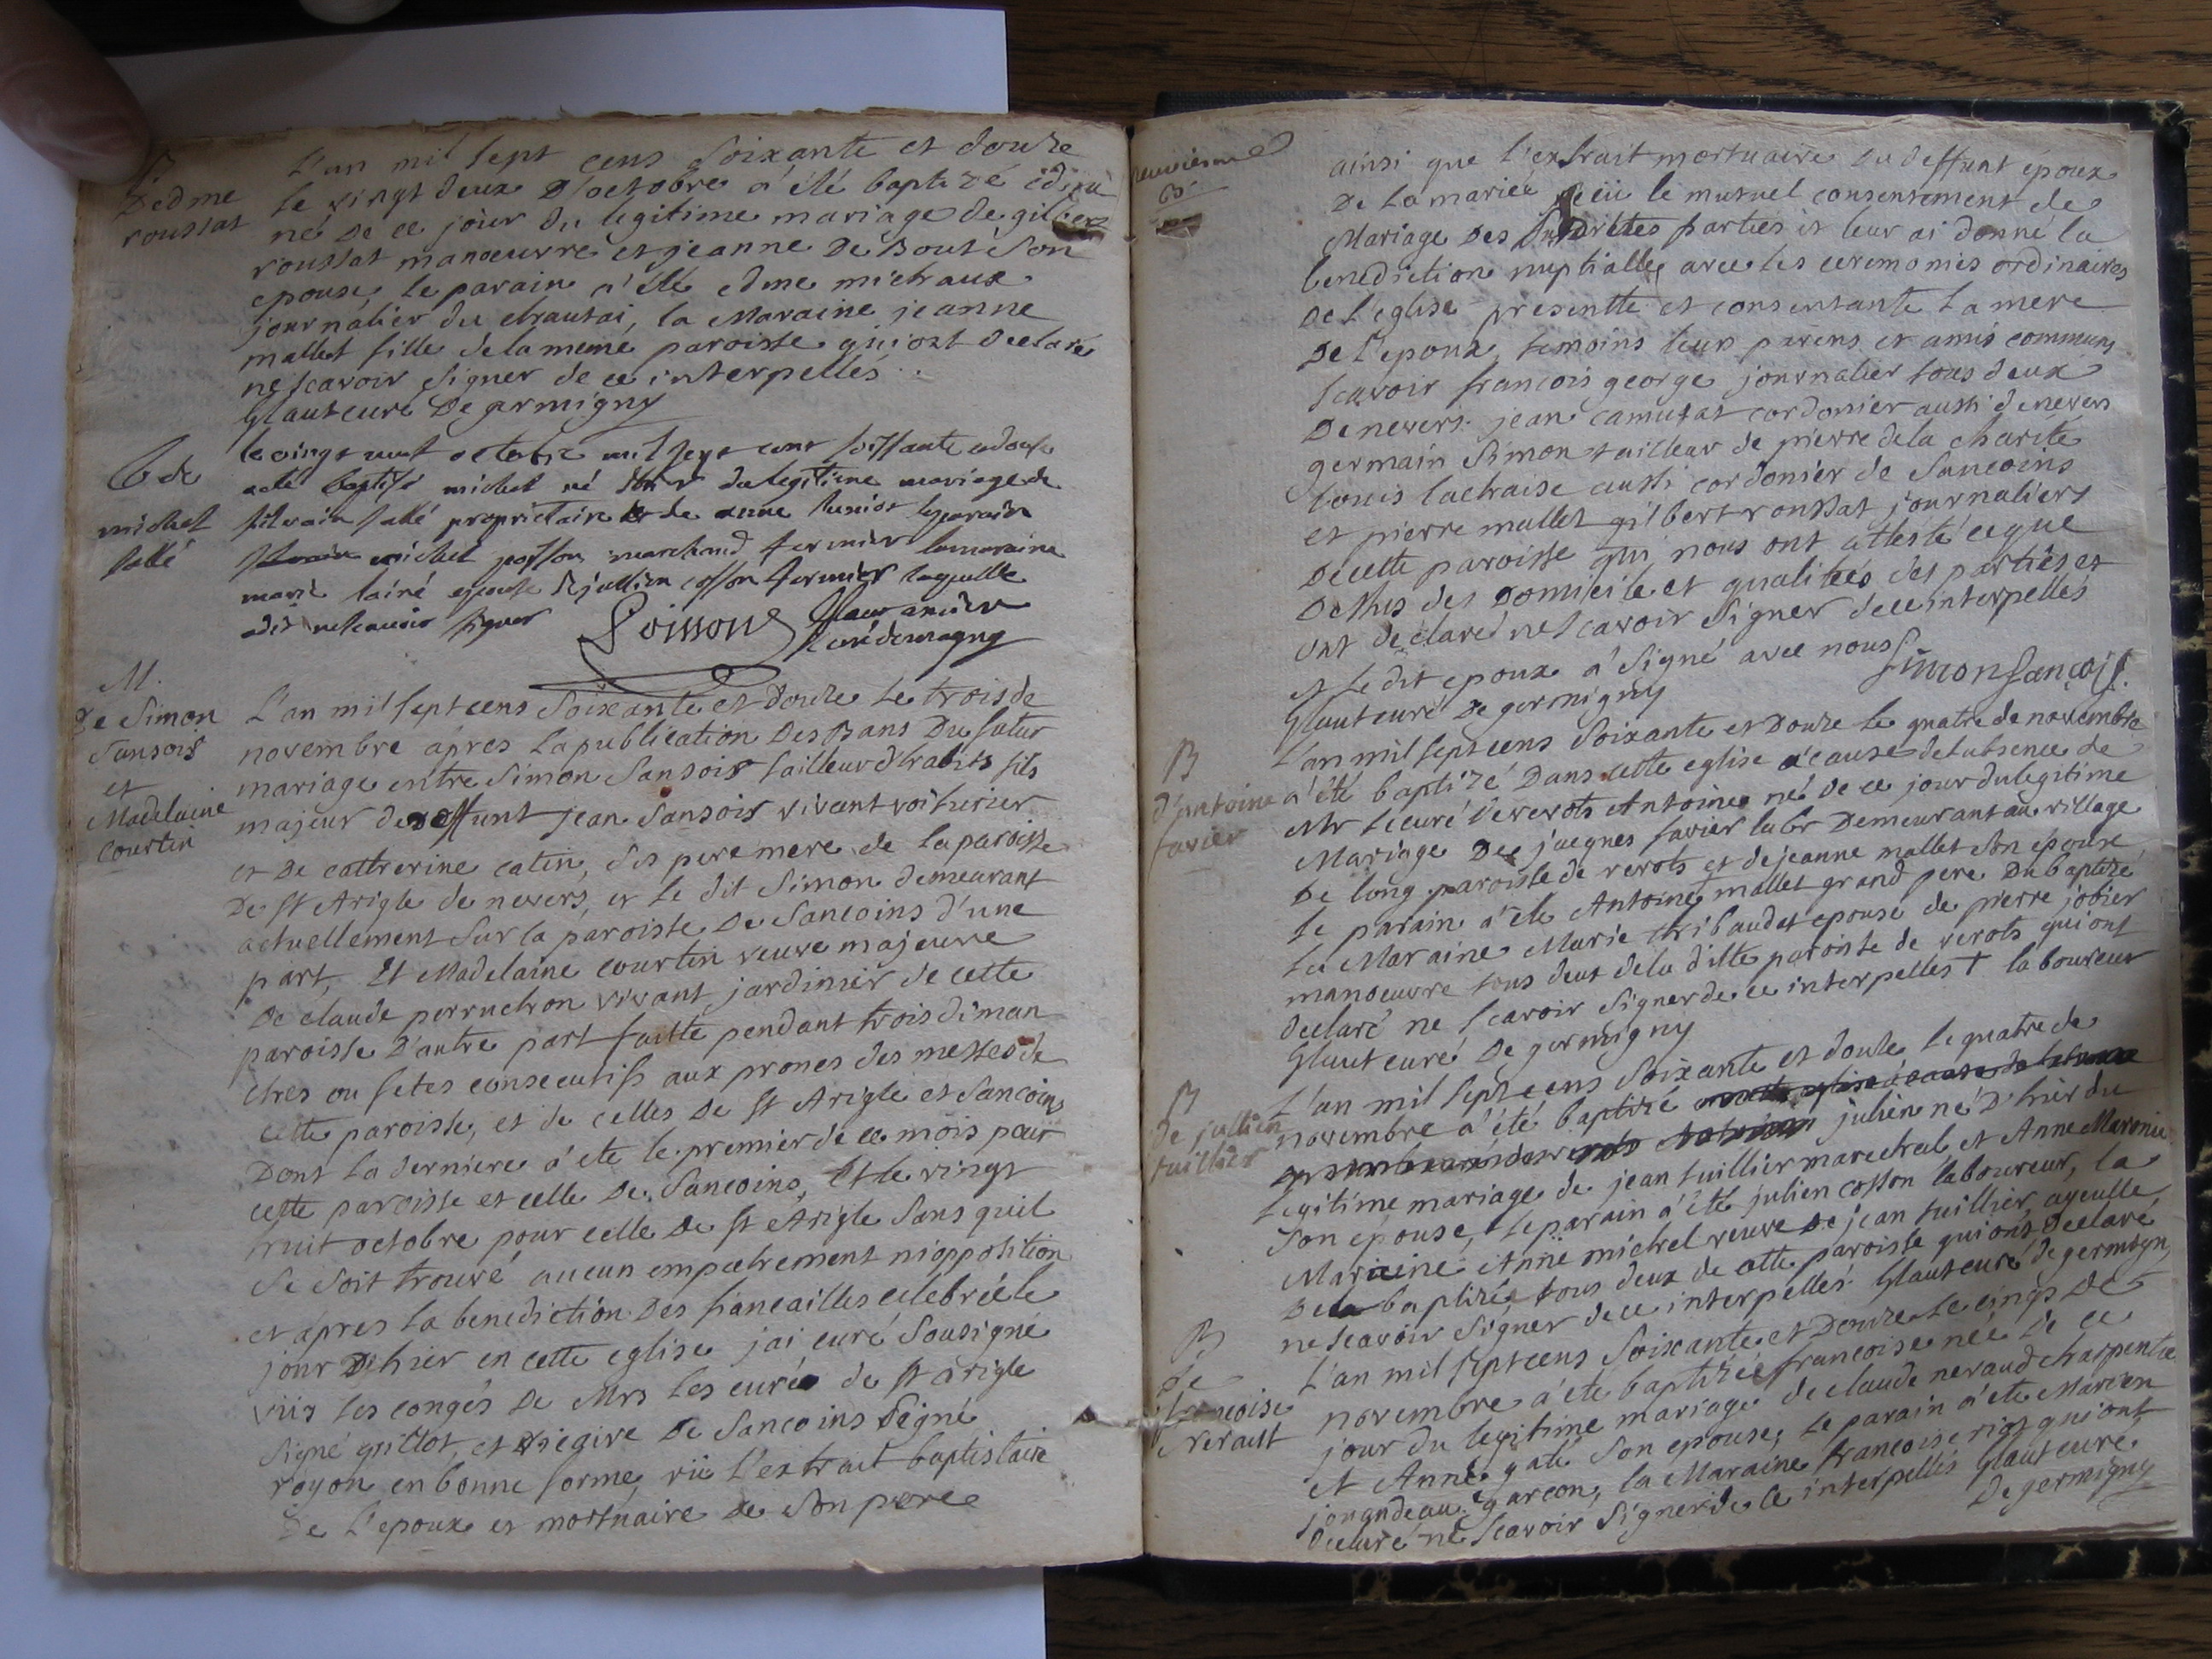 B.
D'edme
roussat
L'an mil sept cens soixante et douze
le vingt deux d'octobre a été baptizé
né de ce jour du legitime mariage de gilbert
roussat manoeuvre et jeanne De Bout son
epouse, le parain a été edme michaux
journalier du chautai, la Maraine jeanne
mallet fille de la meme paroisse qui ont declaré
ne scavoir signer de ce interpellés.
Glaut curé De germigny
B de
michel
sallé
le vingt octobre mil sept cent soissante et douse
a été baptisé michel né du legitime mariage de
silvain sallé proprietaire et de anne le parain
michel poisson marchand fermier la maraine
marie lairé epouse de jullien cosson fermier laquelle
a dit ne scavoir signer
Poisson
curé de magny
M.
de Simon
Sansois
et
Madelaine
Courtin
L'an mil sept cens soixante et douze le trois de
novembre après la publication Des Bans Du futur
mariage entre Simon Sansois tailleur d'habits fils
majeur de deffunt jean Sansois vivant voiturier
et De catherine catin, ses pere mere de la paroisse
De St Arigle de nevers, et le dit Simon demeurant
actuellement sur la paroisse De Sancoins d'une
part, Et Madelaine courtin veuve majeure
De claude perruchon vivant jardinier de cette
paroisse D'autre part faitte pendant trois diman
ches ou fetes consecutifs aux prones des messes de
cette paroisse, et de celles De St Arigle et Sancoins
Dont la derniere a été le premier de ce mois pour
cette paroisse et celle De Sancoins, Et le vingt
huit octobre pour celle De St Arigle Sans quil
Se soit trouvé aucun empechement ni opposition
et après la benediction Des fiancailles celebrée le
jour D'hier en cette eglise jai curé Sousigné
vüs les congés De Mrs les curés de St arigle
signé guillot, et De Sancoins Signé
royon en bonne forme, vü L'extrait baptistaire
De L'epoux et mortuaire de son pere
neuvieme
ainsi que l'extrait mortuaire du deffunt époux
De la mariée reçü le mutuel consentement de
Mariage Des Susdittes parties et leur ai donné la
benediction nuptialle avec les ceremonies ordinaires
De L'eglise presentte et consentante la mere
De L'epoux, temoins leurs parens et amis communs
scavoir francois george journalier tous deux
De nevers. jean camusat cordonier aussi de nevers
germain Simon tailleur de pierre de la charité
louis lachaise aussi cordonier de Sancoins
et pierre mallet gilbert roussat journaliers
De cette paroisse qui nous ont attesté ce que
Dessus des Domicile et qualités des parties et
ont declaré ne scavoir signer de ce interpellés
et le dit epoux a signé avec nous
Glaut curé De germigny
Simon Sançois
B
d'antoine
favier
L'an mil sept cens soixante et Douze le quatre de novembre
a été baptizé Dans cette eglise a cause de l'absence de
Mr le curé De verots Antoine né de ce jour du legitime
Mariage De jacques favier labr Demeurant au village
De long paroisse de verots et de jeanne mallet son épouse
le parain a été Antoine mallet grand pere Du baptizé
La Maraine Marie thibaudat epouse de pierre jobier
manoeuvre tous deux de la ditte paroisse de verots qui ont
declaré ne scavoir signer de ce interpelles + laboureur
Glaut curé De germigny
B
de jullien
tuillier
L'an mil sept cens soixante et douze le quatre de
novembre a été baptizé
julien né D'hier du
legitime mariage de jean tuillier marechal et Anne
Son épouse, le parain a été julien cosson laboureur, la
Maraine Anne michel veuve De jean tuillier, ayeulle
De la baptizé, tous deux de cette paroisse qui ont declaré
ne scavoir signer de ce interpellés Glaut curé de germigny
B
de
francoise
neraut
L'an mil sept cens soixante et Douze le cinq De
novembre a été baptizée francoise née De ce
jour du legitime mariage de claude neraud charpentier
et Anne gaté son epouse, le parain a été Martin
jouandeau garcon, la Maraine francoise riot qui ont
declaré ne scavoir signer de ce interpellés Glaut curé
De germigny